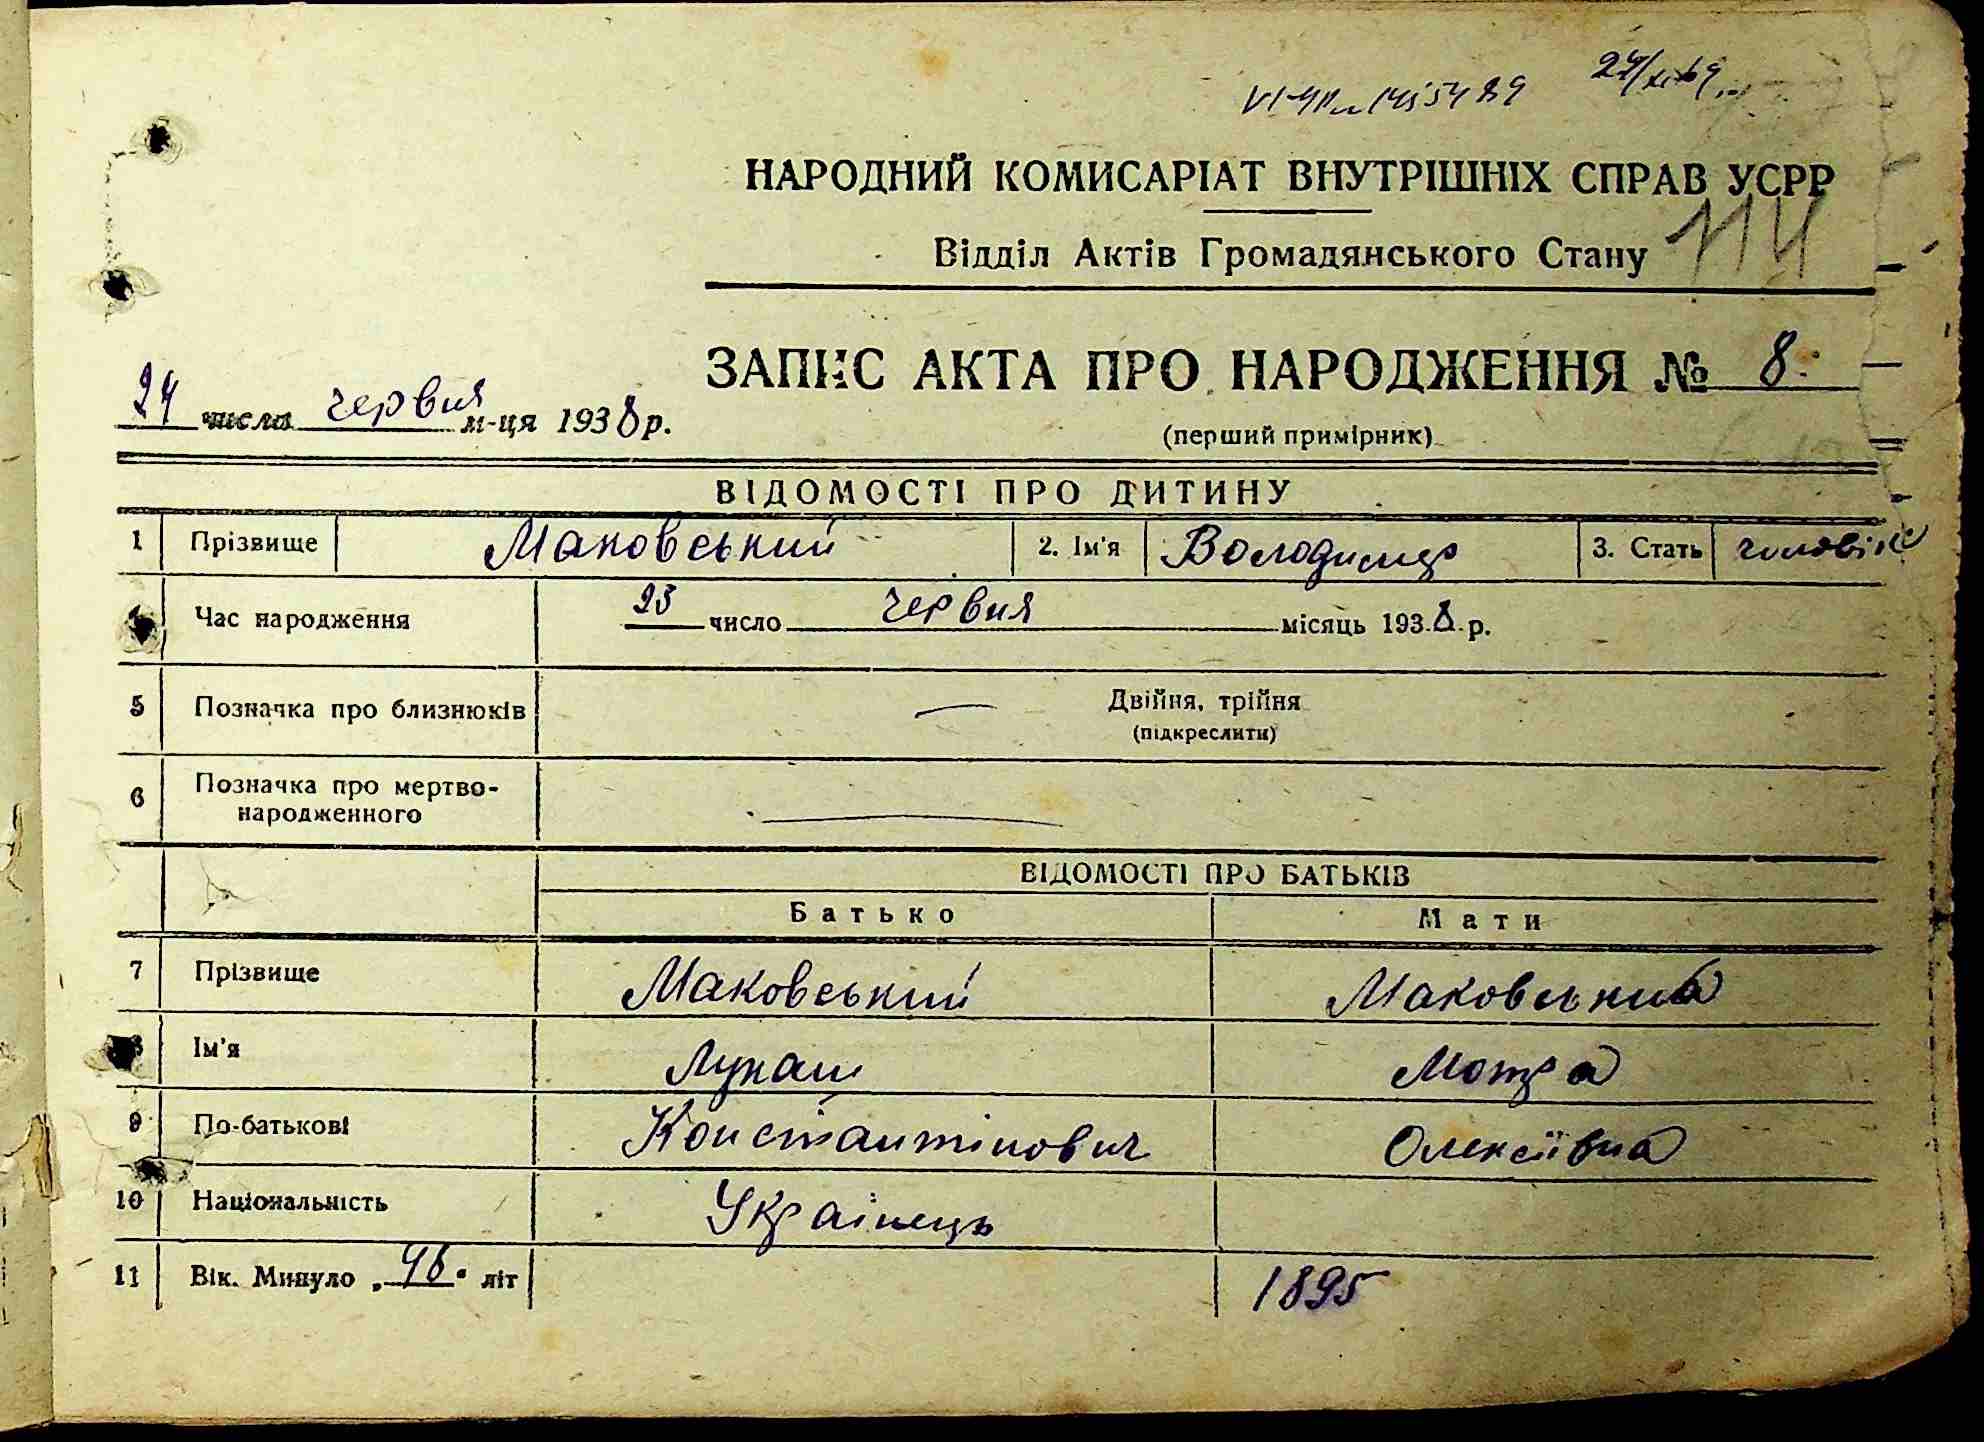 НАРОДНИЙ КОМИСАРІАТ ВНУТРІШНІХ СПРАВ УСРР
114
Відділ Актів Громадянського Стану
ЗАПИС АКТА ПРО НАРОДЖЕННЯ № 8
24 числа червня м-ця 1938 р.
(перший примірник)
ВІДОМОСТІ ПРО ДИТИНУ
1 Прізвище Маковський 2. Ім'я Володимир 3. Стать
Час народження 23 число червня місяць 1938 р.
5 Позначка про близнюків Двійня, трійня
(підкреслити)
6 Позначка про мертво-
народженного
ВІДОМОСТІ ПРО БАТЬКІВ
Батько Мати
7 Прізвище Маковський Маковська
8 Ім'я Лукаш Мотра
9 По-батькові Константінович Олексіївна
10 Національність Українець
11 Вік. Минуло 46 літ 1895